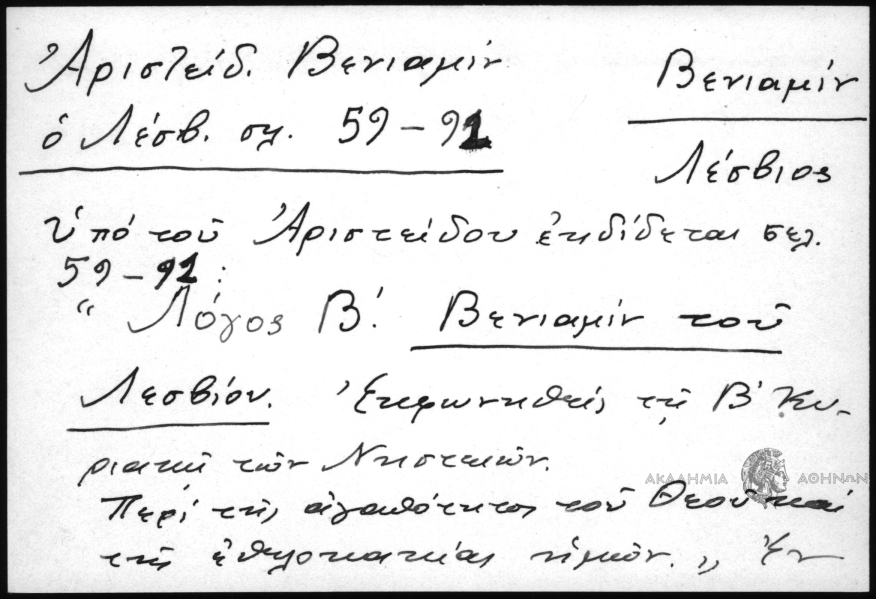 Ἀριστείδ. Βενιαμίν
ὁ Λέσβ. σελ. 59-91
Βενιαμίν
Λέσβιος
Ὑπό τοῦ Ἀριστείδου ἐκδίδεται σελ.
59-91 :
“ Λόγος Β΄. Βενιαμίν τοῦ
Λεσβίου. Ἐκφωνηθείς τῇ Β΄ Κυ-
ριακῇ τῶν Νηστειῶν.
Περί τῆς ἀγαθότητος τοῦ Θεοῦ καί
τῆς ἐθελοκακίας ἡμῶν. „ Ἐν
ΑΚΑΔΗΜΙΑ ΑΘΗΝΩΝ